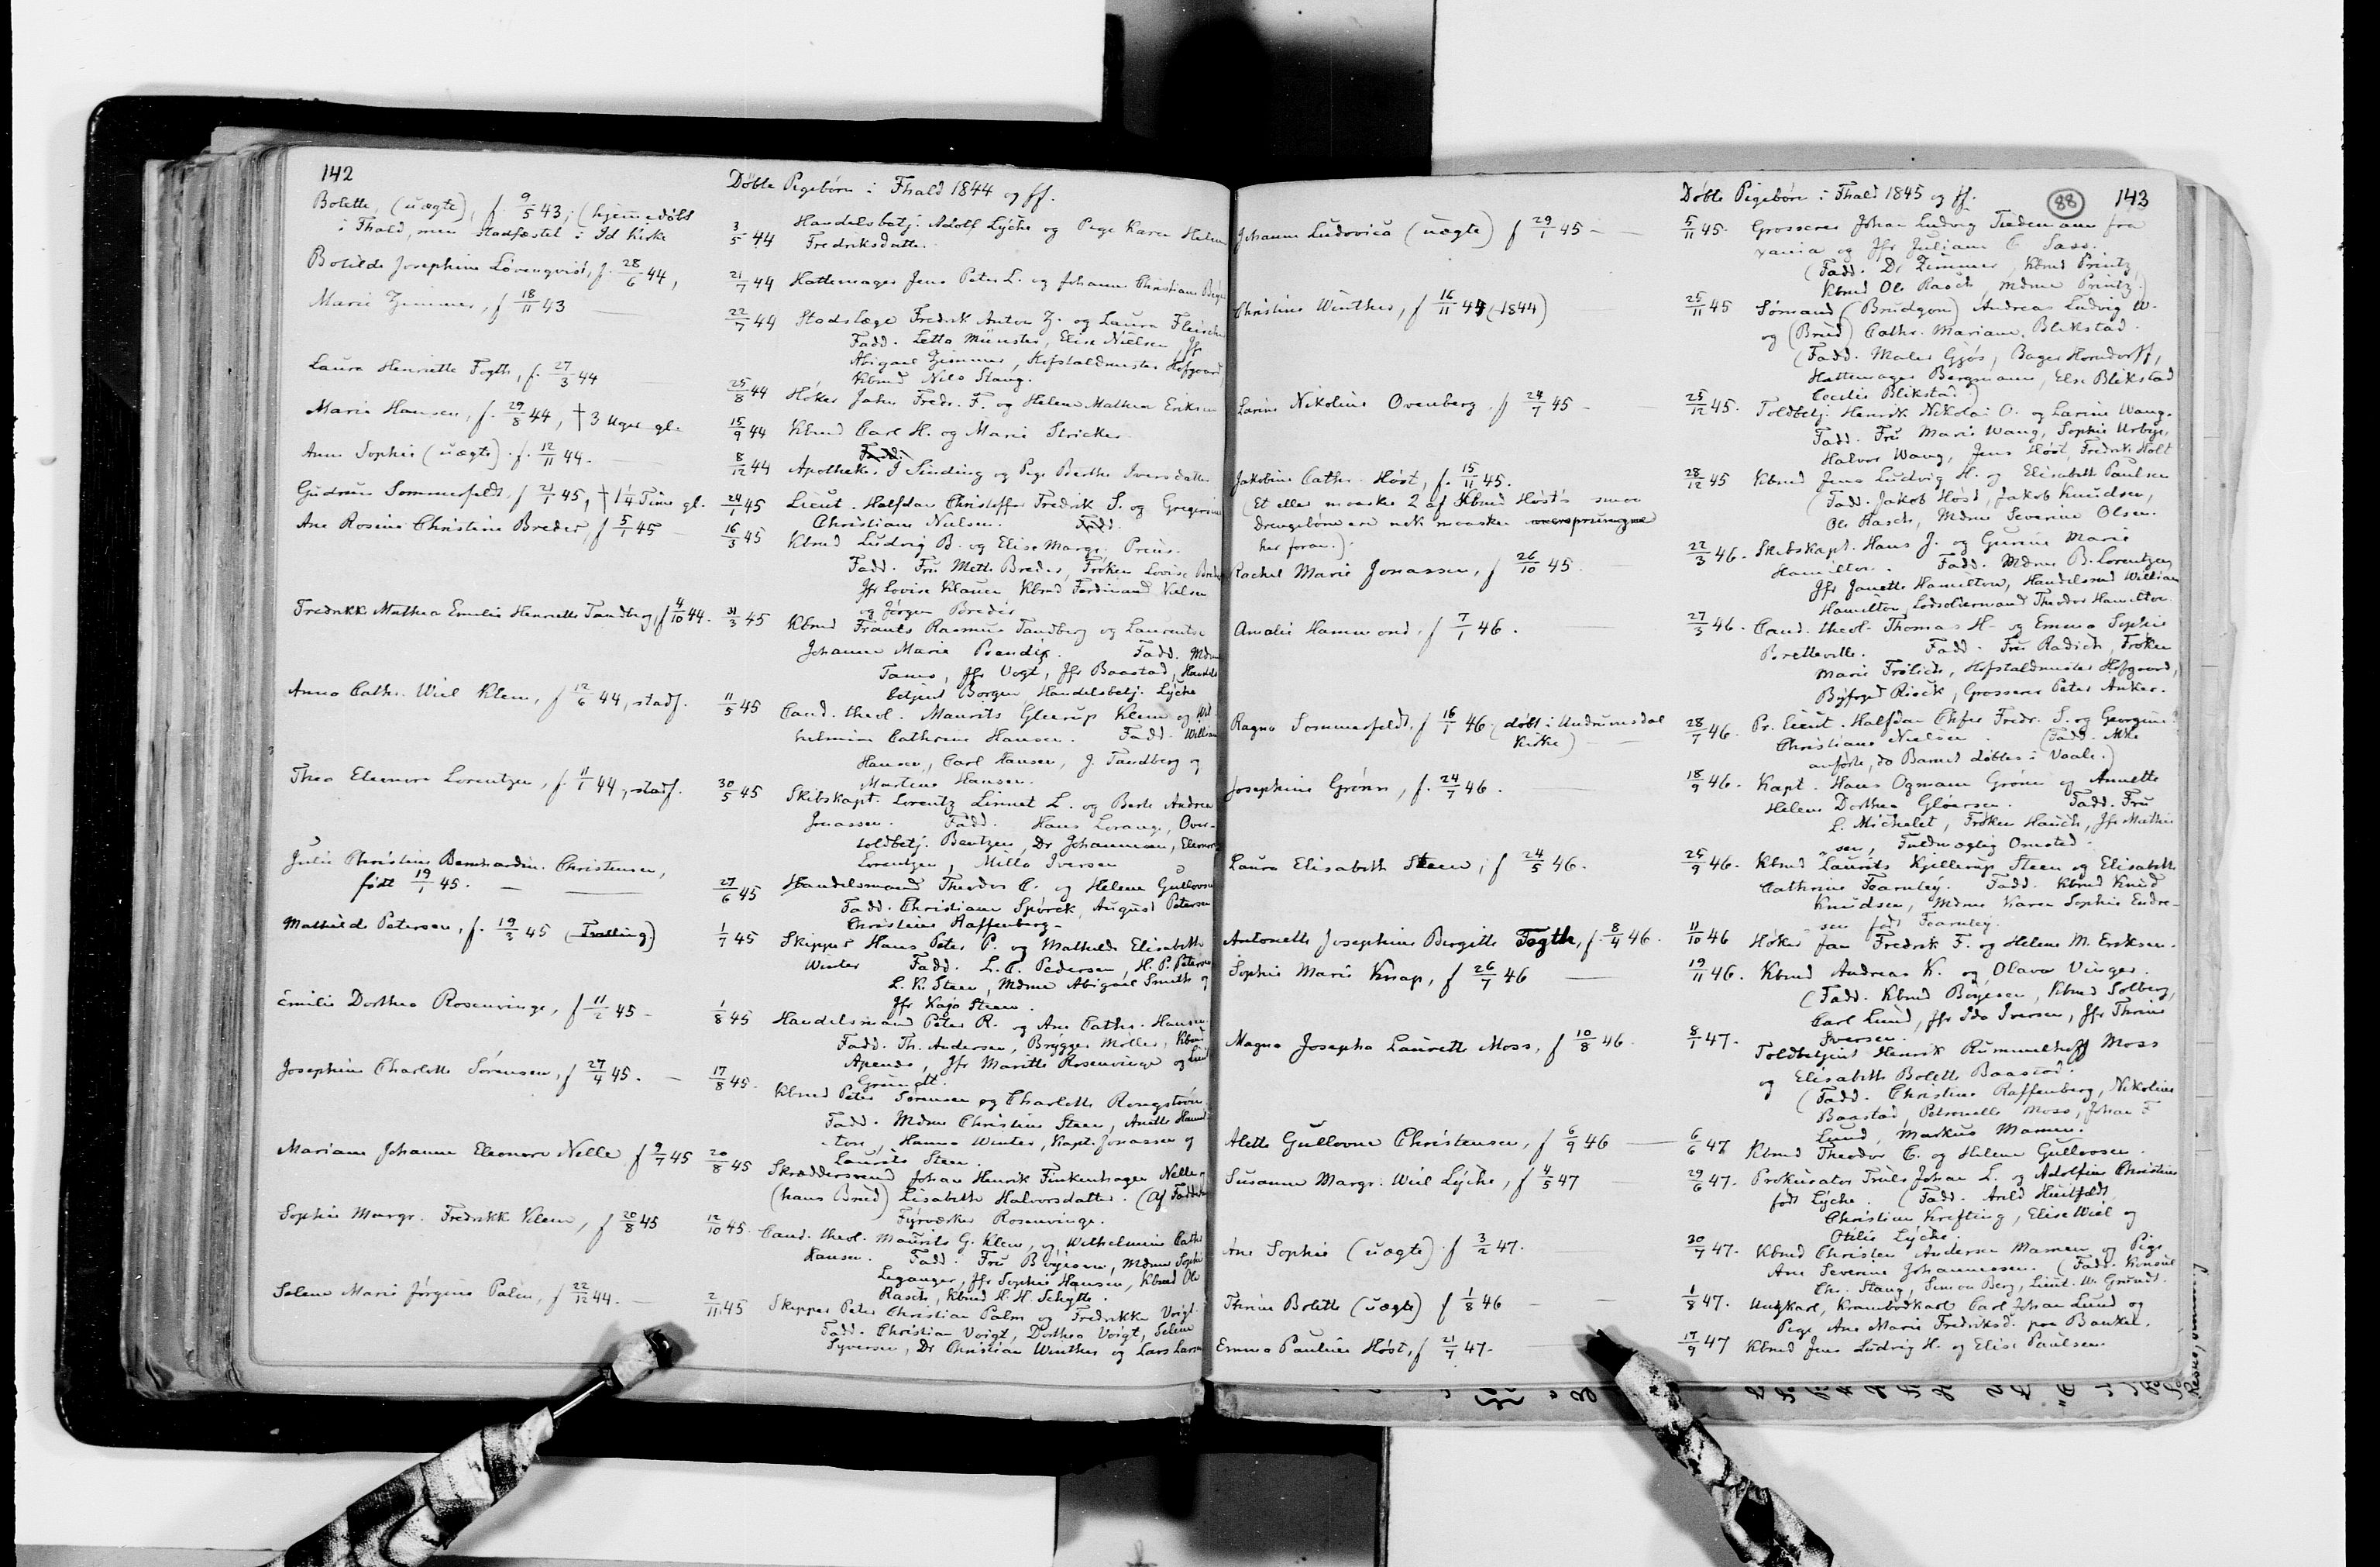 142
Döbte Pigebörn i Fhald 1844 og ff.
Bolette, (uægte), f. 9/5 43, (hjemmedöbt
i Fhald, men stadfæstet i Id Kirke
3/5 44 Handelsbetj. Adolf Lÿche og Pige Karen Helene
Fredriksdatter.
Botilde Josephine Lövenqvist, f. 28/6 44,
21/7 44 Hattemager Jens Peter L. og Johanne Christiane
Marie Zimmer, f 18/11 43
22/7 44 Stadslæge Fredrik Anton Z. og Laura Fleischer
Fadd. Letta Münster, Elise Nielsen Jfr
Abigael Zimmer, Hofstaldmester Hofgaard,
Kbmd Nils Stang.
Laura Henriette Fogth, f. 27/3 44
25/8 44 Höker Jahn Fredr. F. og Helene Mathea Eriksen
Marie Hansen, f. 29/8 44, † 3 Uger gl.
15/9 44 Kbmd Carl H. og Marie Stricker
Fadd.
Anne Sophie (uægte) f. 12/11 44.
8/12 44 Apotheker I Sinding og Pige Berthe Iversdatter
Gudrun Sommerfeldt f 21/1 45, † 1/4 Time gl.
24/1 45 Lieut. Halfdan Christoffer Fredrik S. og Gregorine
Christiane Nielsen. Fadd.
Ane Rosine Christine Breder, f 5/1 45
16/3 45 Kbmd Ludvig B. og Elise Margr. Preus.
Fadd. Fru Mette Breder, Fröken Lovise Breder
Jfr Lovise Klauer Kbmd Ferdinand Nielsen
og Jörgen Breder
Fredrikk Mathea Emilie Henriette Tandberg, f 4/10 44.
31/3 45 Kbmd Frants Rasmus Tandberg og Laurentse
Johanne Marie Fadd. Mdme
Tanus, Jfr Vogt, Jfr Baastad, Handels
betjent Borgen Handelsbetj. Lÿche
Anna Cathr. Wiel Klem, f 12/6 44, stadf.
11/5 45 Cand. theol. Maurits Gleerup Klem og Wil-
helmine Cathrine Hansen. Fadd. William
Hansen, Carl Hansen, J. Tandberg og
Martene Hansen.
Thea Eleonora Lorentzen, f. 11/1 44, stadf.
30/5 45 Skibskapt. Lorentz Linnet L. og Berte Andrea
Jonassen. Fadd. Hans Lorange, Over-
toldbetj. Bentzen, Dr Johannsen, Eleonora
Lorentzen, Milla Iversen
Julie Christine Bernhardin. Christensen,
född 19/1 45.
27/6 45 Handelsmand Theodor C. og Helene Gullovsen
Fadd. Christiane Spörck, August Petersen
Christine Raffenberg
Mathilde Petersen, f. 19/3 45 (Tvilling)
1/7 45 Skipper Hans Peter P. og Mathilde Elisabeth
Winter Fadd. L. C. Pedersen, H. P. Petersen
L. K. Steen, Mdme Abigael Smith og
Jfr Kaja Steen.
Emilie Dorthea Rosenvinge, f 11/2 45
1/8 45 Handelsmand Peter R. og Ane Cathr. Hansen
Fadd. Th. Andersen, Brygger Möller, Kbmd
Apenes, Jfr Maritte Rosenvinge og Lieut
Grundt.
Josephine Charlotte Sörensen, f 27/4 45.
17/8 45. Kbmd Peter Sörensen og Charlotte Rengström
Fadd. Mdme Christine Steen, Anette Hamil-
ton, Hanna Winter, Kapt. Jonassen og
Laurits Steen.
Mariane Johanne Eleonore Nelle f 9/7 45
20/8 45 Skræddersvend Johan Henrik Finkenhagen Nelle og
(hans Brud) Lisabeth Halvorsdatter. (Af Fadderne
Fyrværker Rosenvinge.
Sophie Margr. Fredrikk Klem, f 20/8 45
12/10 45. Cand. theol. Maurits G. Klem og Wilhelmine Cathr
Hansen. Fadd. Fru Böyesen, Mdme Sophie
Leganger, Jfr Sophie Hansen, Kbmd Ole
Rasch, Kbmd H. H. Schÿtte.
Selene Marie Jörgine Palm, f 22/12 44.
2/11 45 Skipper Peter Christian Palm og Fredrikke Voigt.
Fadd. Christian Voigt, Dorthea Voigt, Selene
Syversen, Dr Christian Winther og Lars Larsen
Döbte Pigebörn i Fhald 1845 og ff.
88
143
Johanne Ludovica (uægte) f 29/1 45
5/11 45. Grosserer Johan Ludvig Tiedemann fra
xania og Jfr Juliane C. Sass.
(Fadd. Dr Zimmer, Kbmd Printz,
Kbmd Ole Rasch, Mdme Printz.)
Christine Winther, f 16/11 44 (1844)
25/11 45 Sömand (Brudgom) Andreas Ludvig W.
og (Brud) Cathr. Mariane Blikstad.
(Fadd. Maler Gjös, Bager Horndorff,
Hattemager Bergmann, Else Blikstad
Cecilie Blikstad)
Larine Nikoline Ovenberg f 24/7 45
25/12 45. Toldbetj. Henrik Nikolai O. og Larine Wang.
Fadd. Fru Marie Wang, Sophie Urbye,
Halvor Wang, Jens Höst, Fredrik Holt
Jakobine Cathr. Höst, f. 15/11 45.
(Et eller maaske 2 af Kbmd Höst's smaa
Drengebörn ere nok maaske oversprungne
her foran.)
28/12 45 Kbmd Jens Ludvig H. og Elisabeth Paulsen
(Fadd. Jakob Höst, Jakob Knudsen,
Ole Rasch, Mdme Severine Olsen.
Rachel Marie Jonassen, f 26/10 45.
22/3 46. Skibskapt. Hans J. og Gurine Marie
Hamilton. Fadd. Mdme B. Lorentzen
Jfr Janette Hamilton, Handelsmd William
Hamilton, Lodsoldermand Theodor Hamilton.
Amalie Hammond, f 7/1 46.
27/3 46. Cand. theol. Thomas H. og Emma Sophie
Bretteville. Fadd. Fru Radich, Fröken
Marie Frölich, Hofstaldmester Hofgaard,
Byfoged Risck, Grosserer Peter Anker.
Ragna Sommerfeldt, f 16/1 46 (döbt i Undrumsdal
Kirke)
28/7 46. Pr. Lieut. Halfdan Chfer Fredr. S. og Georgine?
Christiane Nielsen. (Fadd. ikke
anförte, da Barnet döbtes i Vaale.)
Josephine Grönn, f. 24/7 46.
18/9 46. Kapt. Hans Ogmann Grönn og Annette
Helene Dorthea Glöersen. Fadd. Fru
L. Michelet, Fröken Hauch, Jfr Mathie
sen, Fuldmægtig Omsted.
Laura Elisabeth Steen, f 24/5 46.
25/9 46. Kbmd Laurits Kjellerup Steen og Elisabeth
Cathrine Fearnley. Fadd. Kbmd Knud
Knudsen, Mdme Karen Sophie Endre-
sen född Fearnley.
Antonette Josephine Birgitte Fogth, f. 8/4 46.
11/10 46 Höker Jan Fredrik F. og Helene M. Eriksen.
Sophie Marie Knap, f 26/7 46
19/11 46. Kbmd Andreas K. og Olava Vinger.
(Fadd. Kbmd Böyesen, Kbmd Solberg,
Carl Lund, Jfr Ida Iversen, Jfr Thrine
Iversen.
Magna Josepha Laurette Moss, f 10/8 46.
8/1 47. Toldbetjent Henrik Rummelhoff Moss
og Elisabeth Bolette Baastad.
(Fadd. Christine Raffenberg, Nikoline
Baastad, Petronelle Moss, Johan F
Lund, Markus Mamen.
Alette Gullovne Christensen, f 6/9 46
6/6 47 Kbmd Theodor C. og Helene Gullovsen.
Susanne Margr. Wiel Lÿche, f 4/5 47
29/6 47. Prokurator Truls Johan L. og Adolfine Christine
född Lÿche. (Fadd. Arild Huitfeldt,
Christian Krefting, Elise Wiel og
Otilie Lÿche.
Ane Sophie (uægte) f 3/2 47.
30/7 47. Kbmd Christen Andersen Mamen og Pige
Ane Severine Johannessen. (Fadd. Konsul
Chr. Stang, Simon Berg, Lieut. W. Grundt.
Thrine Bolette (uægte) f 1/8 46
1/8 47. Ungkarl, Krambodkarl Carl Johan Lund og
Pige Ane Marie Fredriksd. paa Bankel.
Emma Pauline Höst, f 21/7 47.
17/9 47 Kbmd Jens Ludvig H. og Elise Paulsen